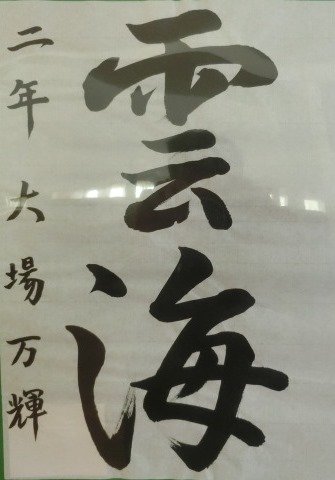 雲海
二年大場万輝